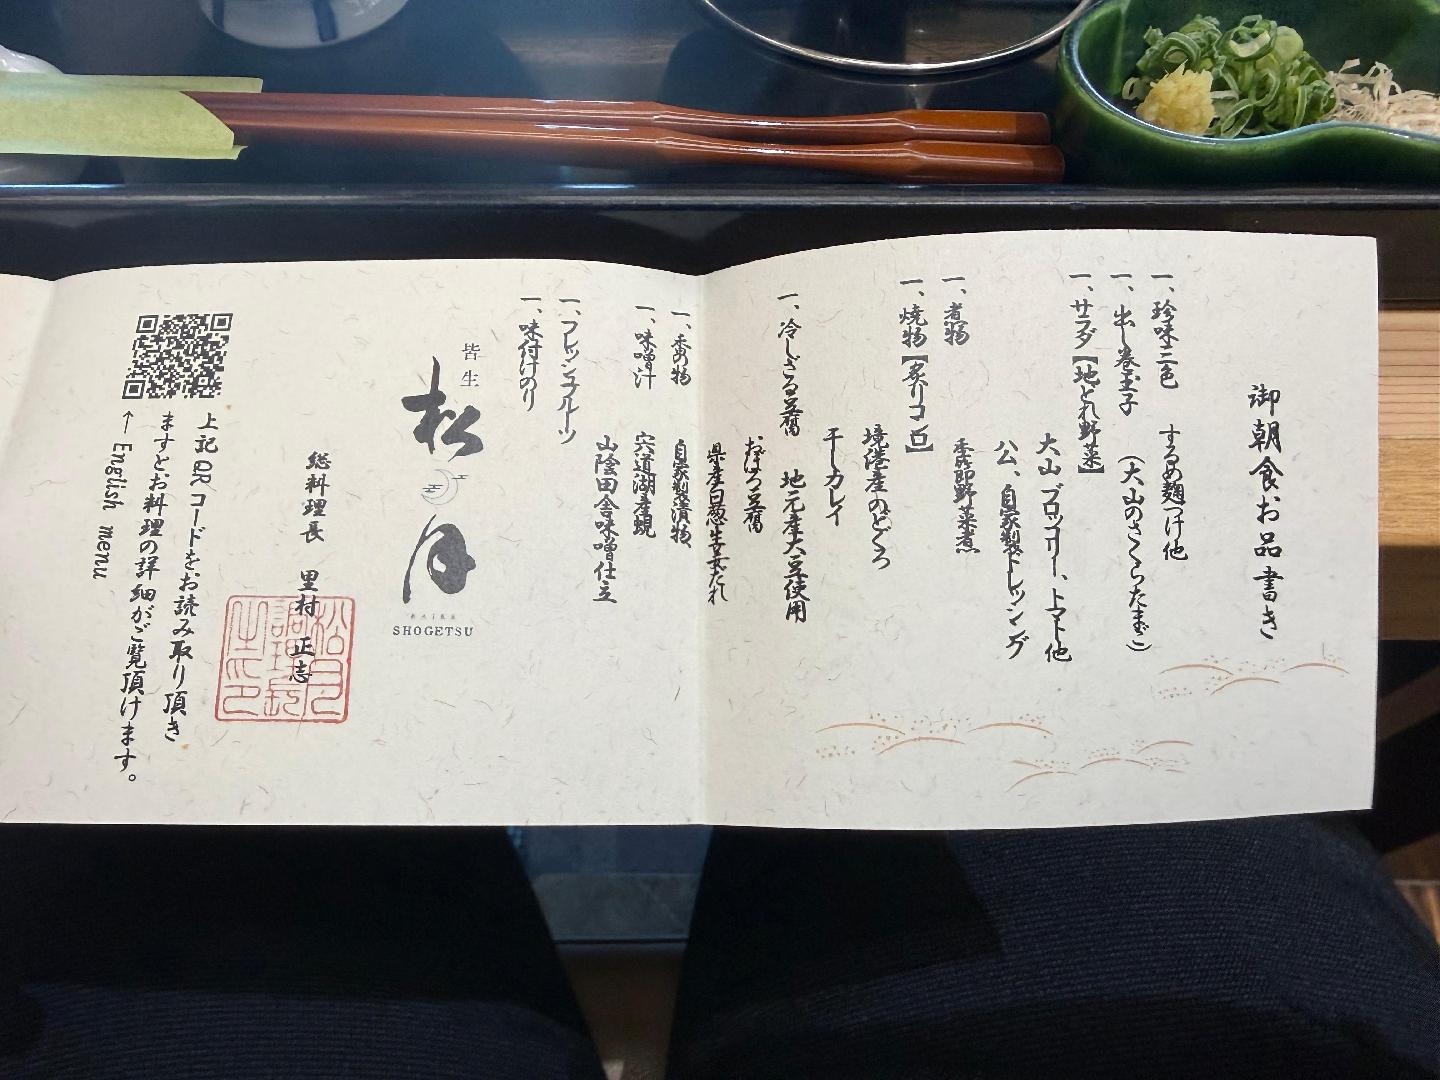 御朝食お品書き
一、珍味三色 するめ麹つけ他
一、出し巻玉子 (大山のさくらたまご)
一、サラダ【地どれ野菜】
大山ブロッコリー、トマト他
公、自家製ドレッシング
一、煮物 季節野菜煮
一、焼物【炙りコンロ】
境港産のどぐろ
干しカレイ
一、冷しざる豆腐 地元産大豆使用
おぼろ豆腐
県産白葱生姜だれ
一、香の物 自家製漬物、
一、味噌汁 宍道湖産蜆
山陰田舎味噌仕立
一、フレッシュフルーツ
一、味付けのり
皆生
松月
SHOGETSU
総料理長 里村 正志
上記QRコードをお読み取り頂き
ますとお料理の詳細がご覧頂けます。
↑English menu